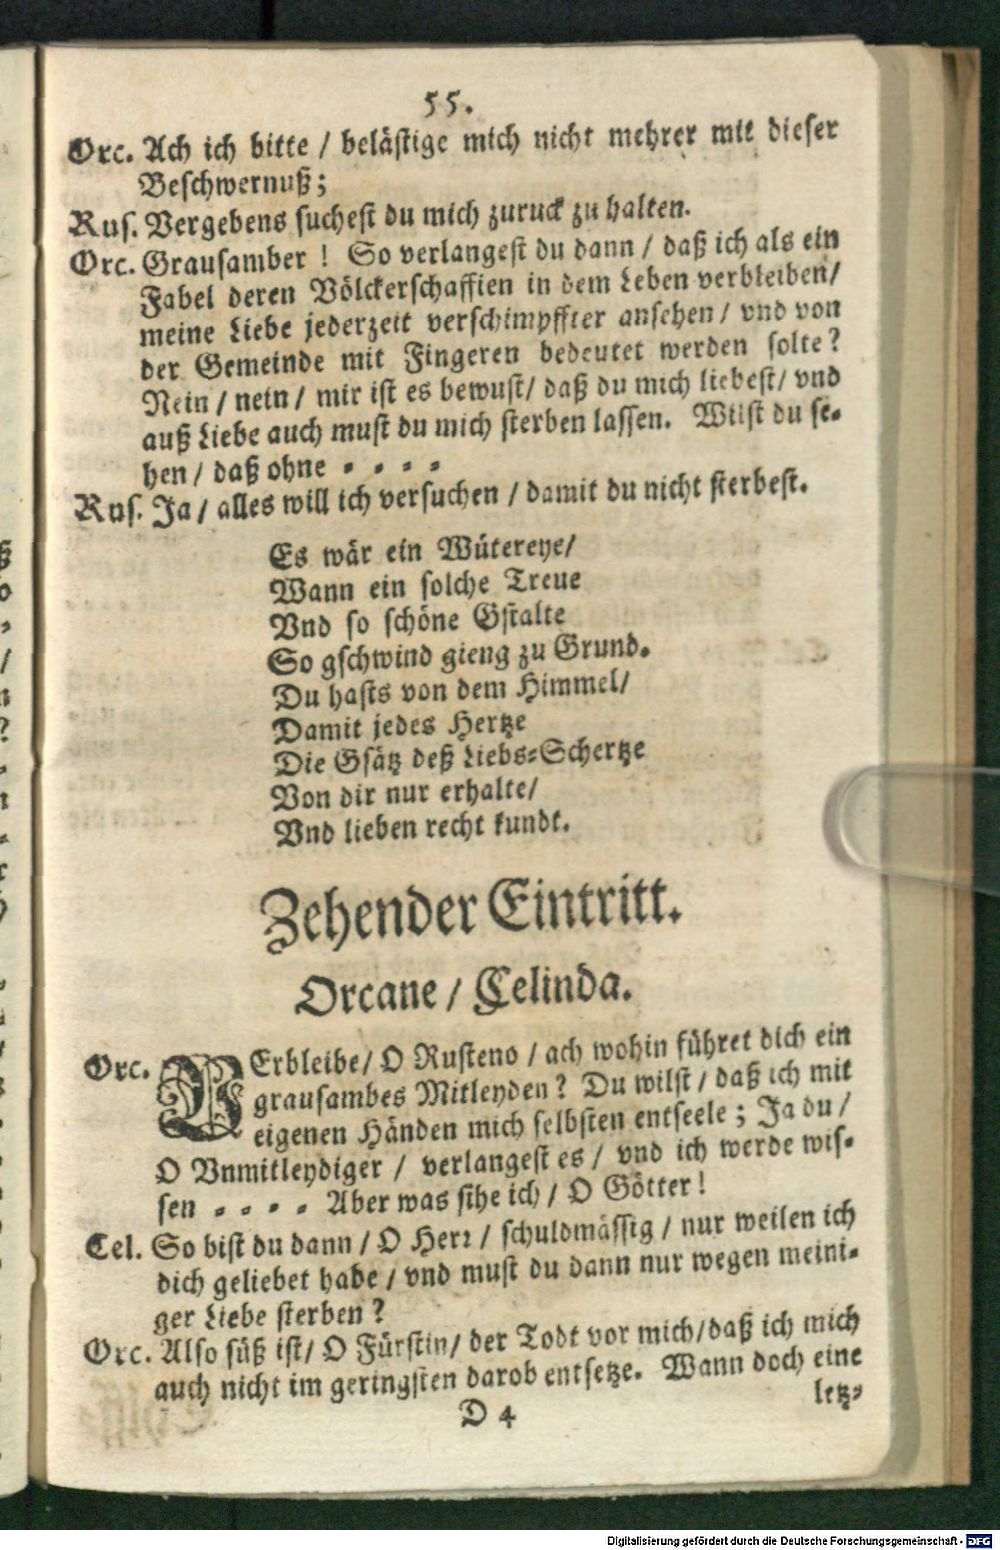 55.
Orc. Ach ich bitte / belästige mich nicht mehrer mit dieser
Beschwernuß;
Rus. Vergebens suchest du mich zuruck zu halten.
Orc. Grausamber ! So verlangest du dann / daß ich als ein
Fabel deren Völckerschafften in dem Leben verbleiben/
meine Liebe jederzeit verschimpffter ansehen / vnd von
der Gemeinde mit Fingeren bedeutet werden solte?
Nein / nein / mir ist es bewust/ daß du mich liebest/ vnd
auß Liebe auch must du mich sterben lassen. Wilst du se-
hen / daß ohne - - - -
Rus. Ja / alles will ich versuchen / damit du nicht sterbest.
Es wär ein Wütereye/
Wann ein solche Treue
Vnd so schöne Gstalte
So gschwind gieng zu Grund.
Du hasts von dem Himmel/
Damit jedes Hertze
Die Gsätz deß Liebs-Schertze
Von dir nur erhalte/
Vnd lieben recht kundt.
Zehender Eintritt.
Orcane / Celinda.
Orc. VErbleibe/ O Rusteno / ach wohin führet dich ein
grausambes Mitleyden? Du wilst / daß ich mit
eigenen Händen mich selbsten entseele ; Ja du /
O Vnmitleydiger / verlangest es / vnd ich werde wis-
sen - - - - Aber was sihe ich / O Götter !
Cel. So bist du dann / O Herr / schuldmässig / nur weilen ich
dich geliebet habe / vnd must du dann nur wegen meini-
ger Liebe sterben ?
Orc. Also süß ist/ O Fürstin/ der Todt vor mich/daß ich mich
auch nicht im geringsten darob entsetze. Wann doch eine
D 4
letz-
Digitalisierung gefördert durch die Deutsche Forschungsgemeinschaft - DFG